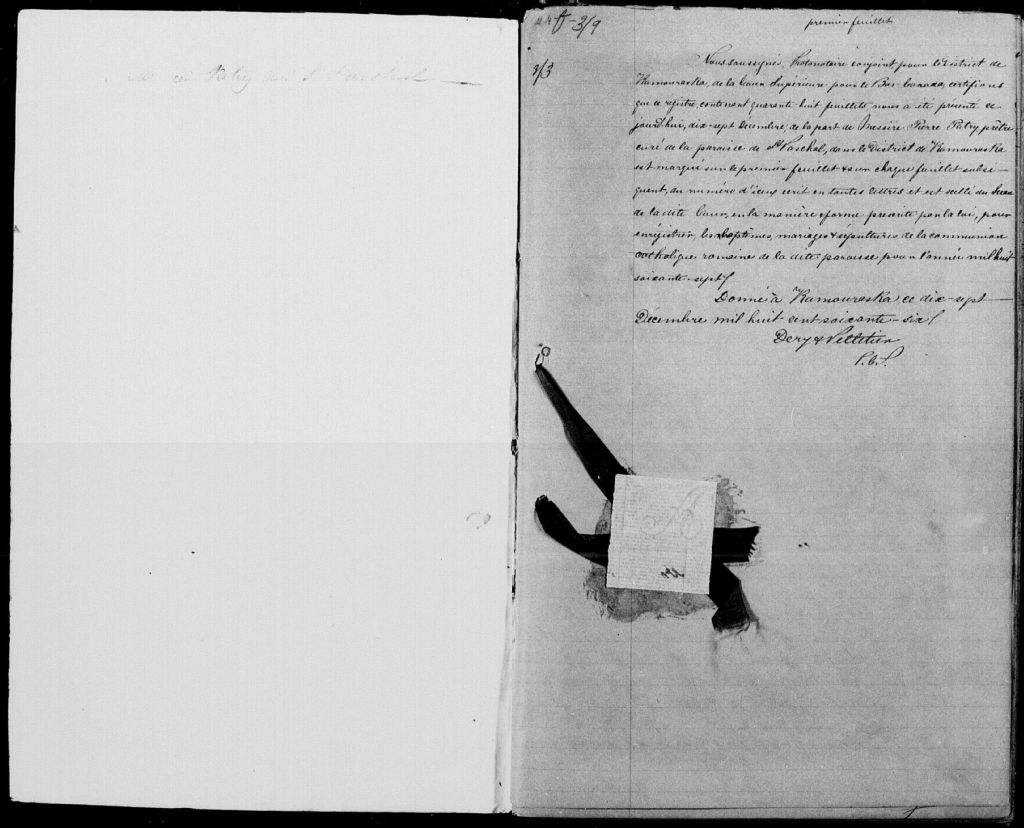 Patry curé St Paschal
3/9
premier feuillet
3/3
Nous soussignés, Protonotaire conjoint pour le District de
Kamouraska, de la Cour Supérieure pour le Bas-Canada, certifions
que ce registre, contenant quarante-huit feuillets, nous a été présenté ce
jourd'hui, dix-sept Décembre, de la part de Messire Pierre Patry, prêtre
curé de la paroisse de St Paschal, dans le District de Kamouraska
est marqué sur le premier feuillet & sur chaque feuillet subsé-
quent, du numéro d'iceux écrit en toutes lettres et est scellé du Sceau
de la dite Cour, en la manière & forme prescrite par la loi, pour
enrégistrer, les baptêmes, mariages & sépultures de la communion
catholique romaine de la dite paroisse pour l'année mil huit
soixante-sept/
Donné à Kamouraska ce dix-sept
Décembre mil huit cent soixante-six/
Dery & Pelletier
P.C.S.